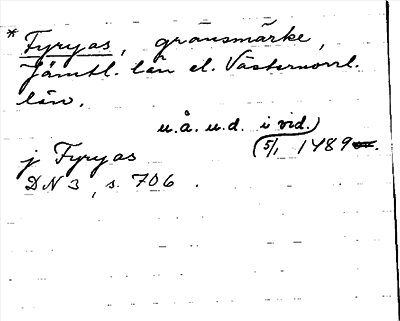 * Fyryas, gränsmärke,
Jämtl. län el. Västernorrl.
län.
u.å. u.d. i vid.
(5/1 1489.
j Fyryas
DN 3, s. 706.